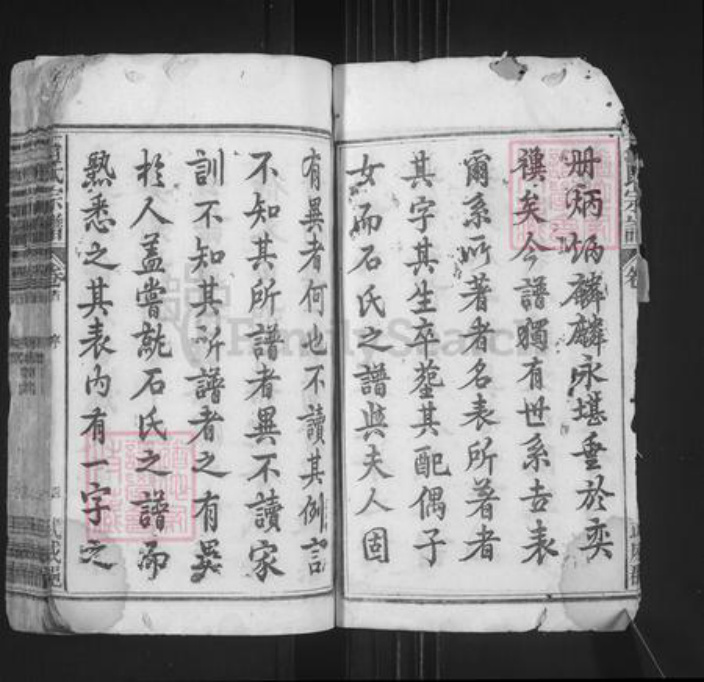 冊炳炳麟麟永堪垂於奕
禩矣今譜獨有世系吉表
爾系所著者名表所著者
其字其生卒塟其配偶子
女而石氏之譜與夫人固
有異者何也不讀其例言
不知其所譜者異不讀家
訓不知其所譜者之有異
於人葢嘗就石氏之譜而
熟悉之其表內有一字之
氏宗譜
卷首
序
武威邑
FamilySearch